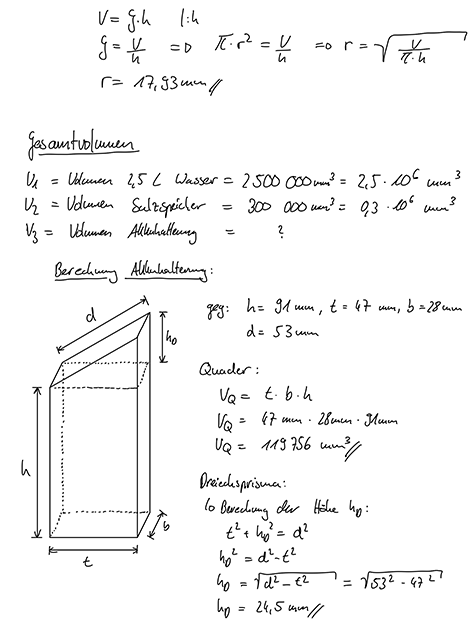 V = G·h   |:h
G = V/h ⇒ π·r² = V/h ⇒ r = √(V/(π·h))
r = 17,93mm //
Gesamtvolumen
V1 = Volumen 2,5 L Wasser = 2500 000mm³ = 2,5·10⁶ mm³
V2 = Volumen Salzspeicher = 300 000mm³ = 0,3·10⁶ mm³
V3 = Volumen Akkuhalterung = ?
Berechnung Akkuhalterung:
d
hD
h
b
t
geg: h= 91mm, t= 47 mm, b= 28mm
d= 53mm
Quader:
VQ = t·b·h
VQ = 47 mm·28mm·91mm
VQ = 119756 mm³ //
Dreiecksprisma:
↳ Berechnung der Höhe hD:
t² + hD² = d²
hD² = d²-t²
hD = √(d²-t²) = √(53²-47²)
hD = 24,5mm //